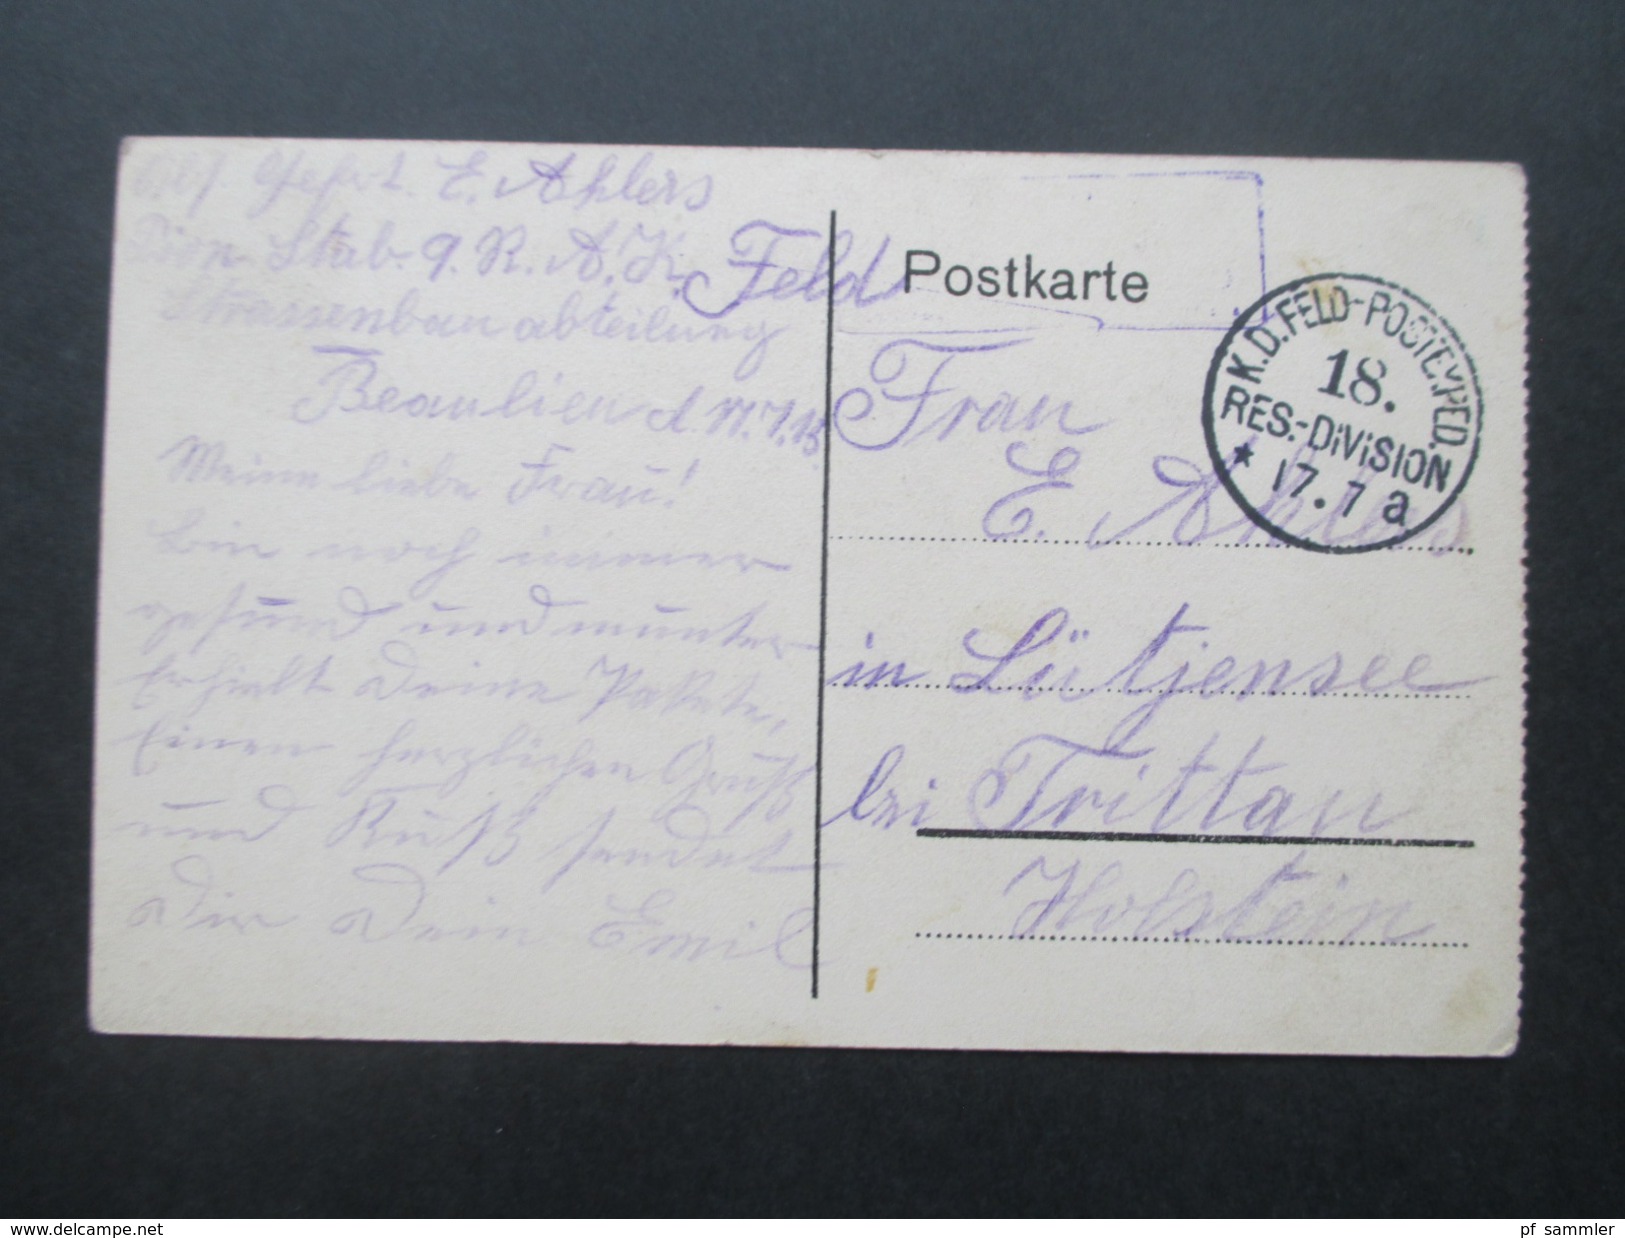 Gefrt. E. Ahlers
Stab. 9. R. A. K.
Strassenbau abteilung
Beaulieu d
Meine liebe Frau!
bin noch immer
gesund und munter
Erhielt Deine Pakete,
Einen herzlichen Gruß
und Kuß sendet
Dir Dein Emil
Feld Postkarte
K.D. FELD-POSTEXPED.
18.
RES.-DIVISION
* 17. 7 a
Frau
E. Ahlers
in Lütjensee
bei Trittau
Holstein
delcampe.net
pf_sammler